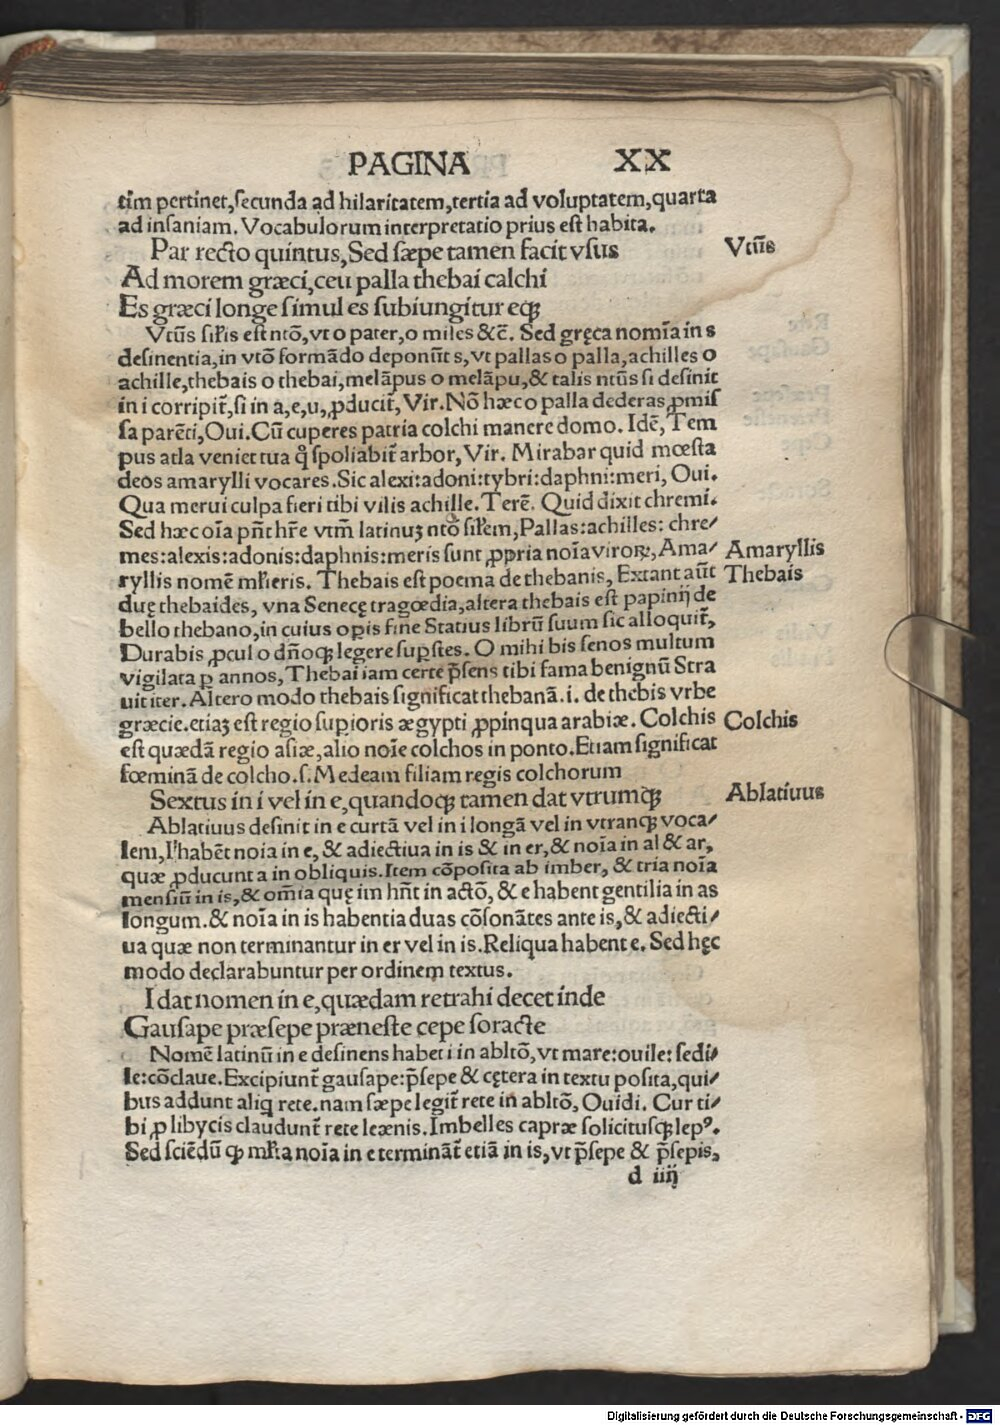 PAGINA XX
tim pertinet,secunda ad hilaritatem,tertia ad voluptatem,quarta
ad insaniam. Vocabulorum interpretatio prius est habita.
Par recto quintus, Sed sæpe tamen facit vsus
Vtũs
Ad morem græci,ceu palla thebai calchi
Es græci longe simul es subiungitur eqꝫ
Vtũs sil'is est ntõ,vt o pater,o miles &c̃. Sed gręca nomĩa in s
desinentia,in vtõ formãdo deponũt s,vt pallas o palla,achilles o
achille,thebais o thebai,melãpus o melãpu,& talis ntũs si desinit
in i corripit᷑,si in a,e,u,ꝓducit᷑, Vir. Nõ hæc o palla dederas ꝓmis
sa parẽti,Oui. Cũ cuperes patria colchi manere domo. Idẽ, Tem
pus atla veniet tua q̊ spoliabit᷑ arbor, Vir. Mirabar quid mœsta
deos amarylli vocares. Sic alexi:adoni:tybri:daphni:meri, Oui.
Qua merui culpa fieri tibi vilis achille. Terẽ. Quid dixit chremi.
Sed hæc oĩa pñt hr̃e vtm̃ latinuꝫ ntõ sil'em, Pallas:achilles: chre/
mes:alexis:adonis:daphnis:meris sunt ꝓpria noĩa viroꝝ, Ama/
Amaryllis
ryllis nomẽ ml'ieris. Thebais est poema de thebanis, Extant aũt
Thebais
duę thebaides, vna Senecę tragœdia,altera thebais est papinij de
bello thebano,in cuius oꝑis fine Statius librũ suum sic alloquit᷑,
Durabis ꝓcul o dñoqꝫ legere suꝑstes. O mihi bis senos multum
vigilata ꝑ annos, Thebai iam certe p̃sens tibi fama benignũ Stra
uit iter. Altero modo thebais significat thebanã.i. de thebis vrbe
græcie.etiaꝫ est regio suꝑioris ægypti ꝓpinqua arabiæ. Colchis
Colchis
est quædã regio asiæ,alio noĩe colchos in ponto. Etiam significat
fœminã de colcho.s. Medeam filiam regis colchorum
Sextus in i vel in e,quandoqꝫ tamen dat vtrumqꝫ
Ablatiuus
Ablatiuus desinit in e curtã vel in i longã vel in vtranqꝫ voca/
lem, habẽt noĩa in e, & adiectiua in is & in er,& noĩa in al & ar,
quæ ꝓducunt a in obliquis. Item cõposita ab imber, & tria noĩa
mensiũ in is,& om̃ia quę im hñt in actõ, & e habent gentilia in as
longum.& noĩa in is habentia duas cõsonãtes ante is,& adiecti/
ua quæ non terminantur in er vel in is. Reliqua habent e. Sed hęc
modo declarabuntur per ordinem textus.
I dat nomen in e,quædam retrahi decet inde
Gausape præsepe præneste cepe soracte
Nomẽ latinũ in e desinens habet i in abltõ,vt mare:ouile: sedi/
le:cõclaue. Excipiunt᷑ gausape:p̃sepe & cętera in textu posita,qui/
bus addunt aliq rete.nam sæpe legit᷑ rete in abltõ, Ouidi. Cur ti/
bi ꝓ libycis claudunt᷑ rete leænis. Imbelles capræ solicitusqꝫ lepꝰ.
Sed sciẽdũ ꝙ ml'ta noĩa in e terminãt᷑ etiã in is,vt p̃sepe & p̃sepis,
d iiij
Digitalisierung gefördert durch die Deutsche Forschungsgemeinschaft - DFG